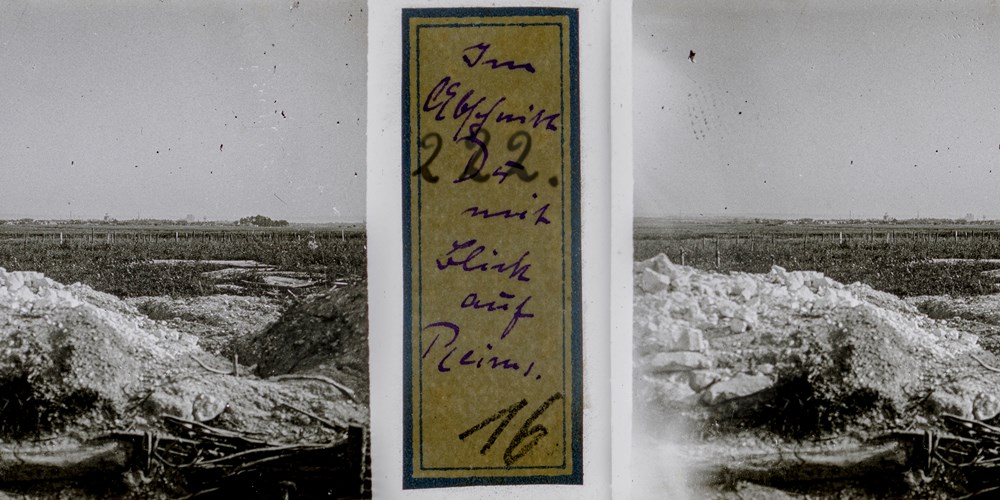 Im
Abschnitt
222.
D4
mit
Blick
auf
Reims.
16